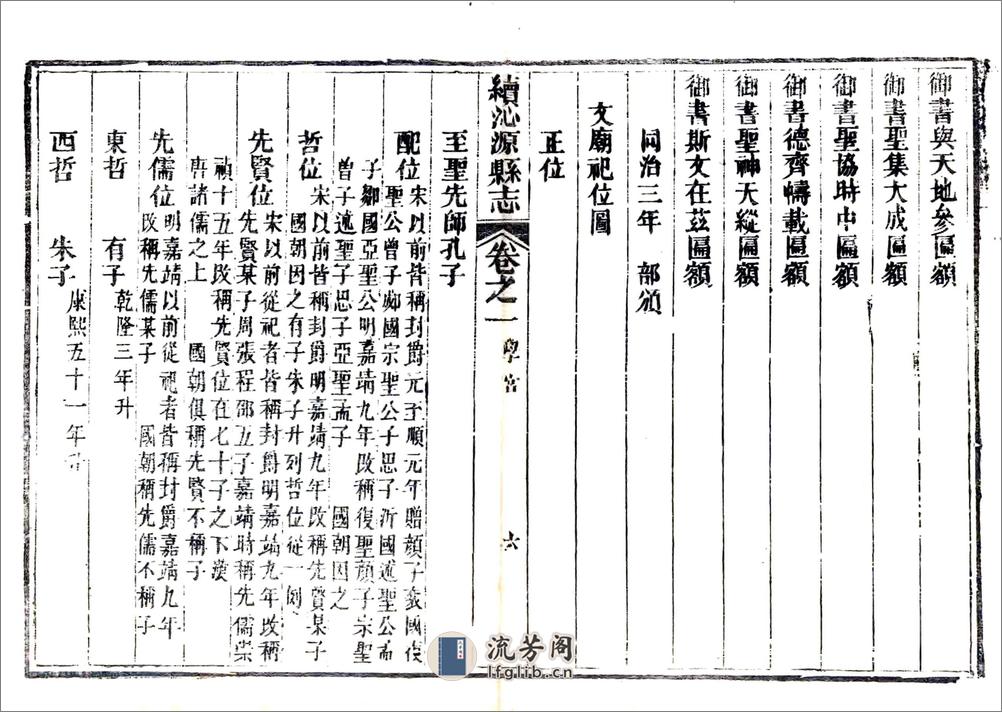 御書與天地參匾額
御書聖集大成匾額
御書聖協時中匾額
御書德齊幬載匾額
御書聖神天縱匾額
御書斯文在茲匾額
同治三年 部頒
文廟祀位圖
正位
續沁源縣志 卷之一 學宮 六
至聖先師孔子
配位 宋以前皆稱封爵元至順元年贈顏子兗國復
聖公曾子郕國宗聖公子思子沂國述聖公孟
子鄒國亞聖公明嘉靖九年改稱復聖顏子宗聖
曾子述聖子思子亞聖孟子 國朝因之
哲位 宋以前皆稱封爵明嘉靖九年改稱先賢某子
國朝因之有子朱子升列哲位從一例
先賢位 宋以前從祀者皆稱封爵明嘉靖九年改稱
先賢某子周張程邵五子嘉靖時稱先儒崇
禎十五年改稱先賢位在七十子之下漢
唐諸儒之上 國朝俱稱先賢不稱子
先儒位 明嘉靖以前從祀者皆稱封爵嘉靖九年
改稱先儒某子 國朝稱先儒不稱子
東哲 有子 乾隆三年升
西哲 朱子 康熙五十一年升
流芳阁
lfglib.cn